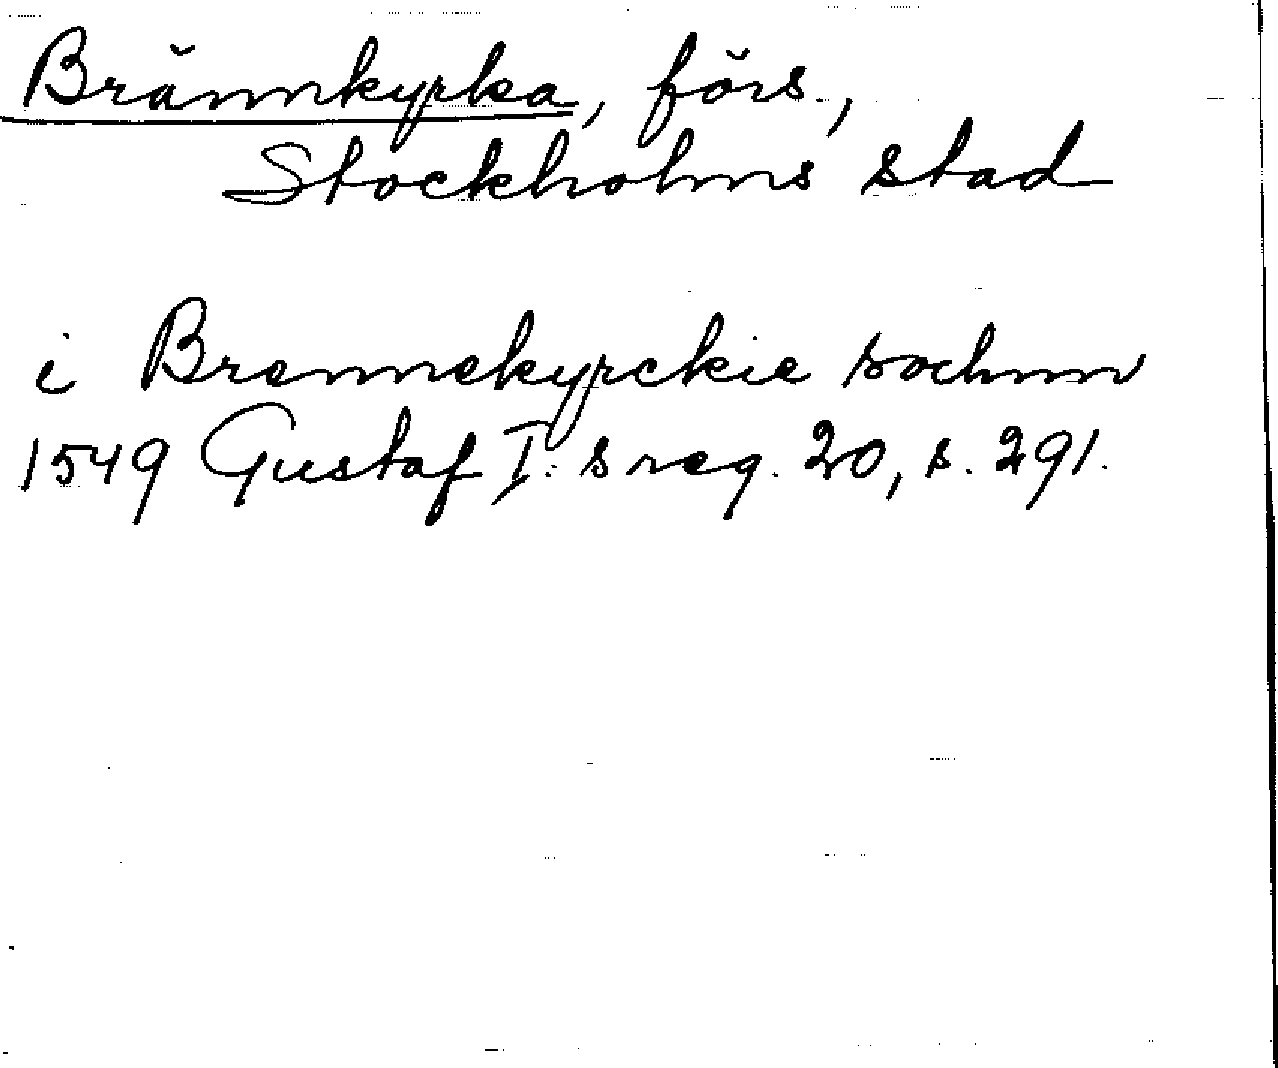 Brännkyrka, förs.,
Stockholms stad
i Brennekyrckie sochnn
1549 Gustaf I:s reg. 20, s. 291.